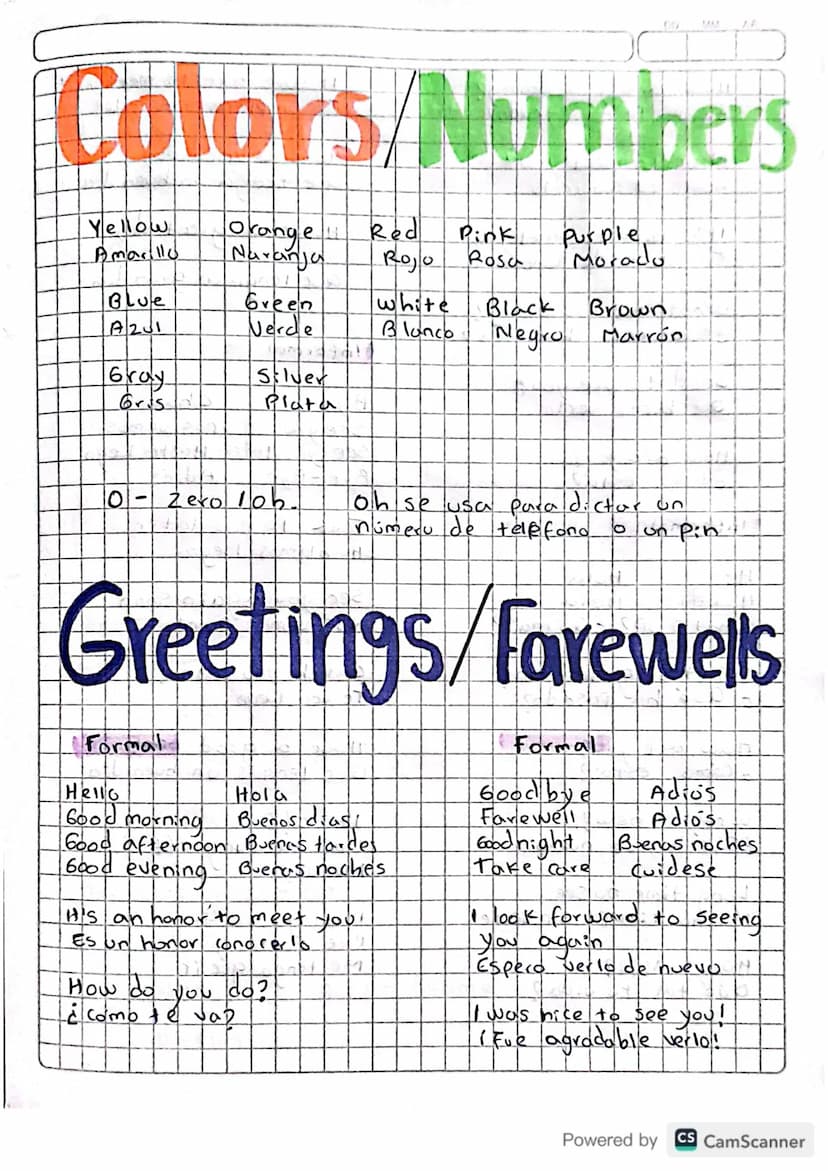 Colors/Numbers
Yellow Orange Red Pink Purple
Amarillo Naranja Rojo Rosa Morado
Blue Green White Black Brown
Azul Verde Blanco Negro Marrón
Gray Silver
Gris Plata
0 - Zero / oh. Oh se usa para dictar un
número de teléfono o un pin
Greetings/Farewells
Formal
Hello Hola
Good morning Buenos días
Good afternoon Buenas tardes
Good evening Buenas noches
It's an honor to meet you
Es un honor conocerlo
How do you do?
¿cómo te va?
Formal
Goodbye Adiós
Farewell Adiós
Goodnight Buenas noches
Take care Cuídese
I look forward to seeing
you again
Espero verlo de nuevo
I was nice to see you!
¡Fue agradable verlo!
Powered by CS CamScanner